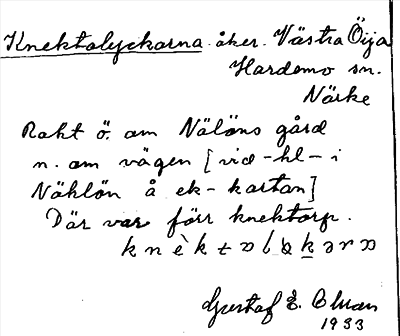 Knektalyckorna åker. Västra Öija
Hardemo sn.
Närke
Rakt ö. om Nälöns gård
n. om vägen [vid -hl- i
Nählön å ek-kartan]
Där var förr knektorp.
Gustaf E. Olman
1933